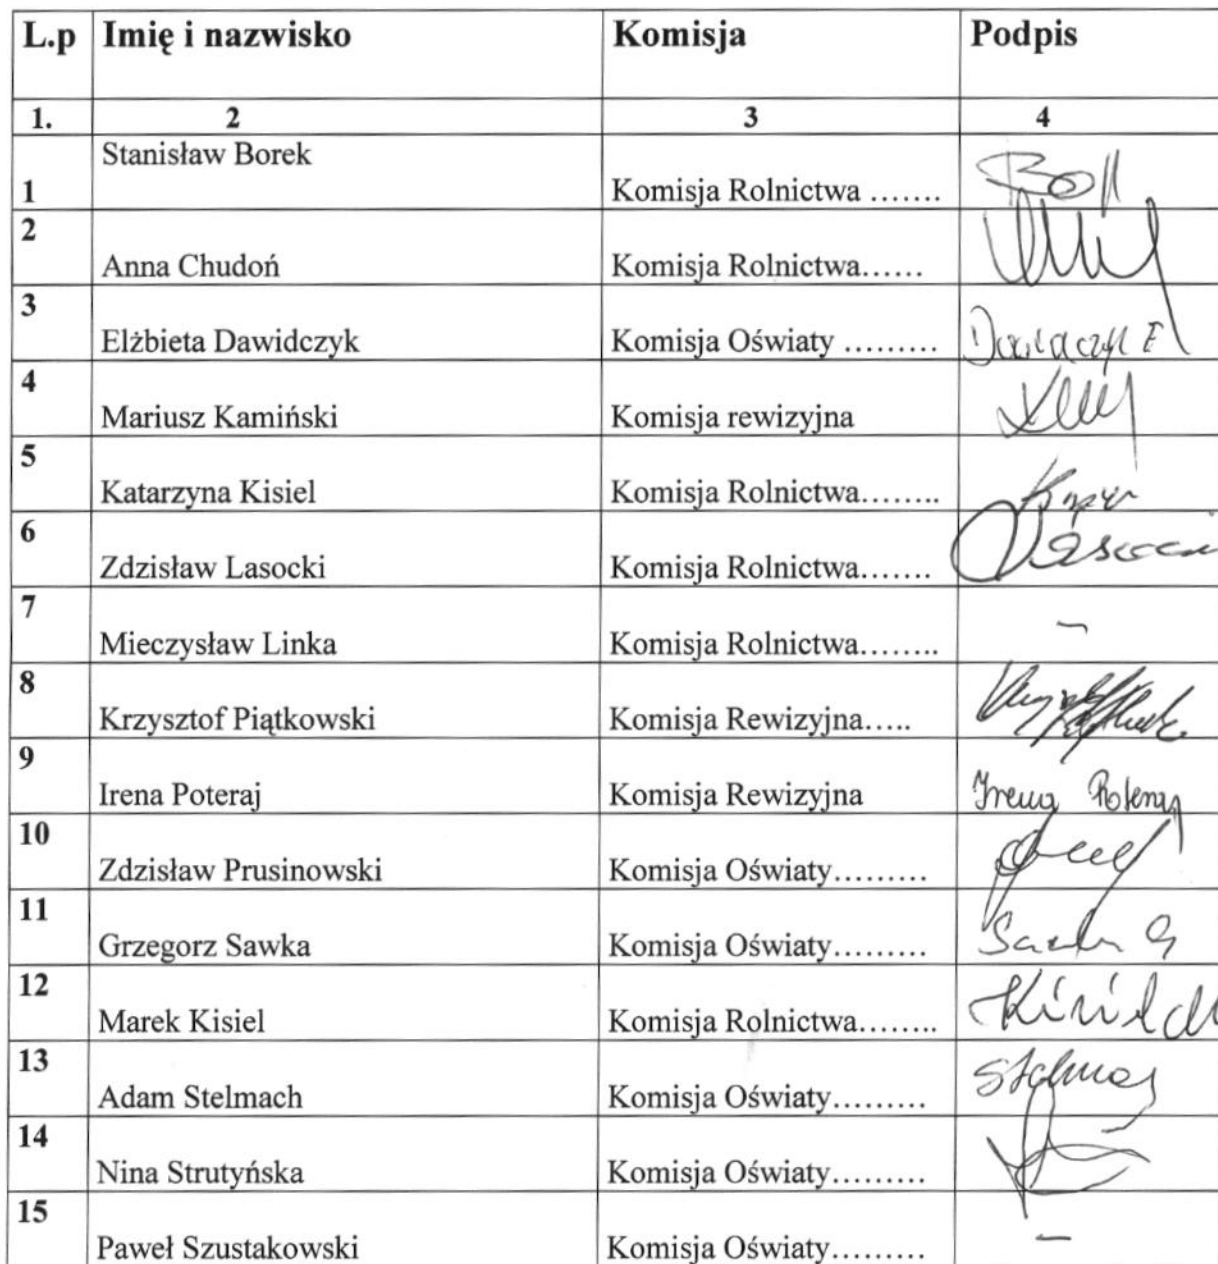 L.p Imię i nazwisko Komisja Podpis
1. 2 3 4
Stanisław Borek
1 Komisja Rolnictwa …….
2
Anna Chudoń Komisja Rolnictwa……
3
Elżbieta Dawidczyk Komisja Oświaty ……… Dawidczyk E
4
Mariusz Kamiński Komisja rewizyjna
5
Katarzyna Kisiel Komisja Rolnictwa……..
6
Zdzisław Lasocki Komisja Rolnictwa…….
7
Mieczysław Linka Komisja Rolnictwa…….. –
8
Krzysztof Piątkowski Komisja Rewizyjna…..
9
Irena Poteraj Komisja Rewizyjna Irena Poteraj
10
Zdzisław Prusinowski Komisja Oświaty………
11
Grzegorz Sawka Komisja Oświaty……… Sawka G
12
Marek Kisiel Komisja Rolnictwa…….. Kisiel M
13
Adam Stelmach Komisja Oświaty………
14
Nina Strutyńska Komisja Oświaty………
15
Paweł Szustakowski Komisja Oświaty……… –